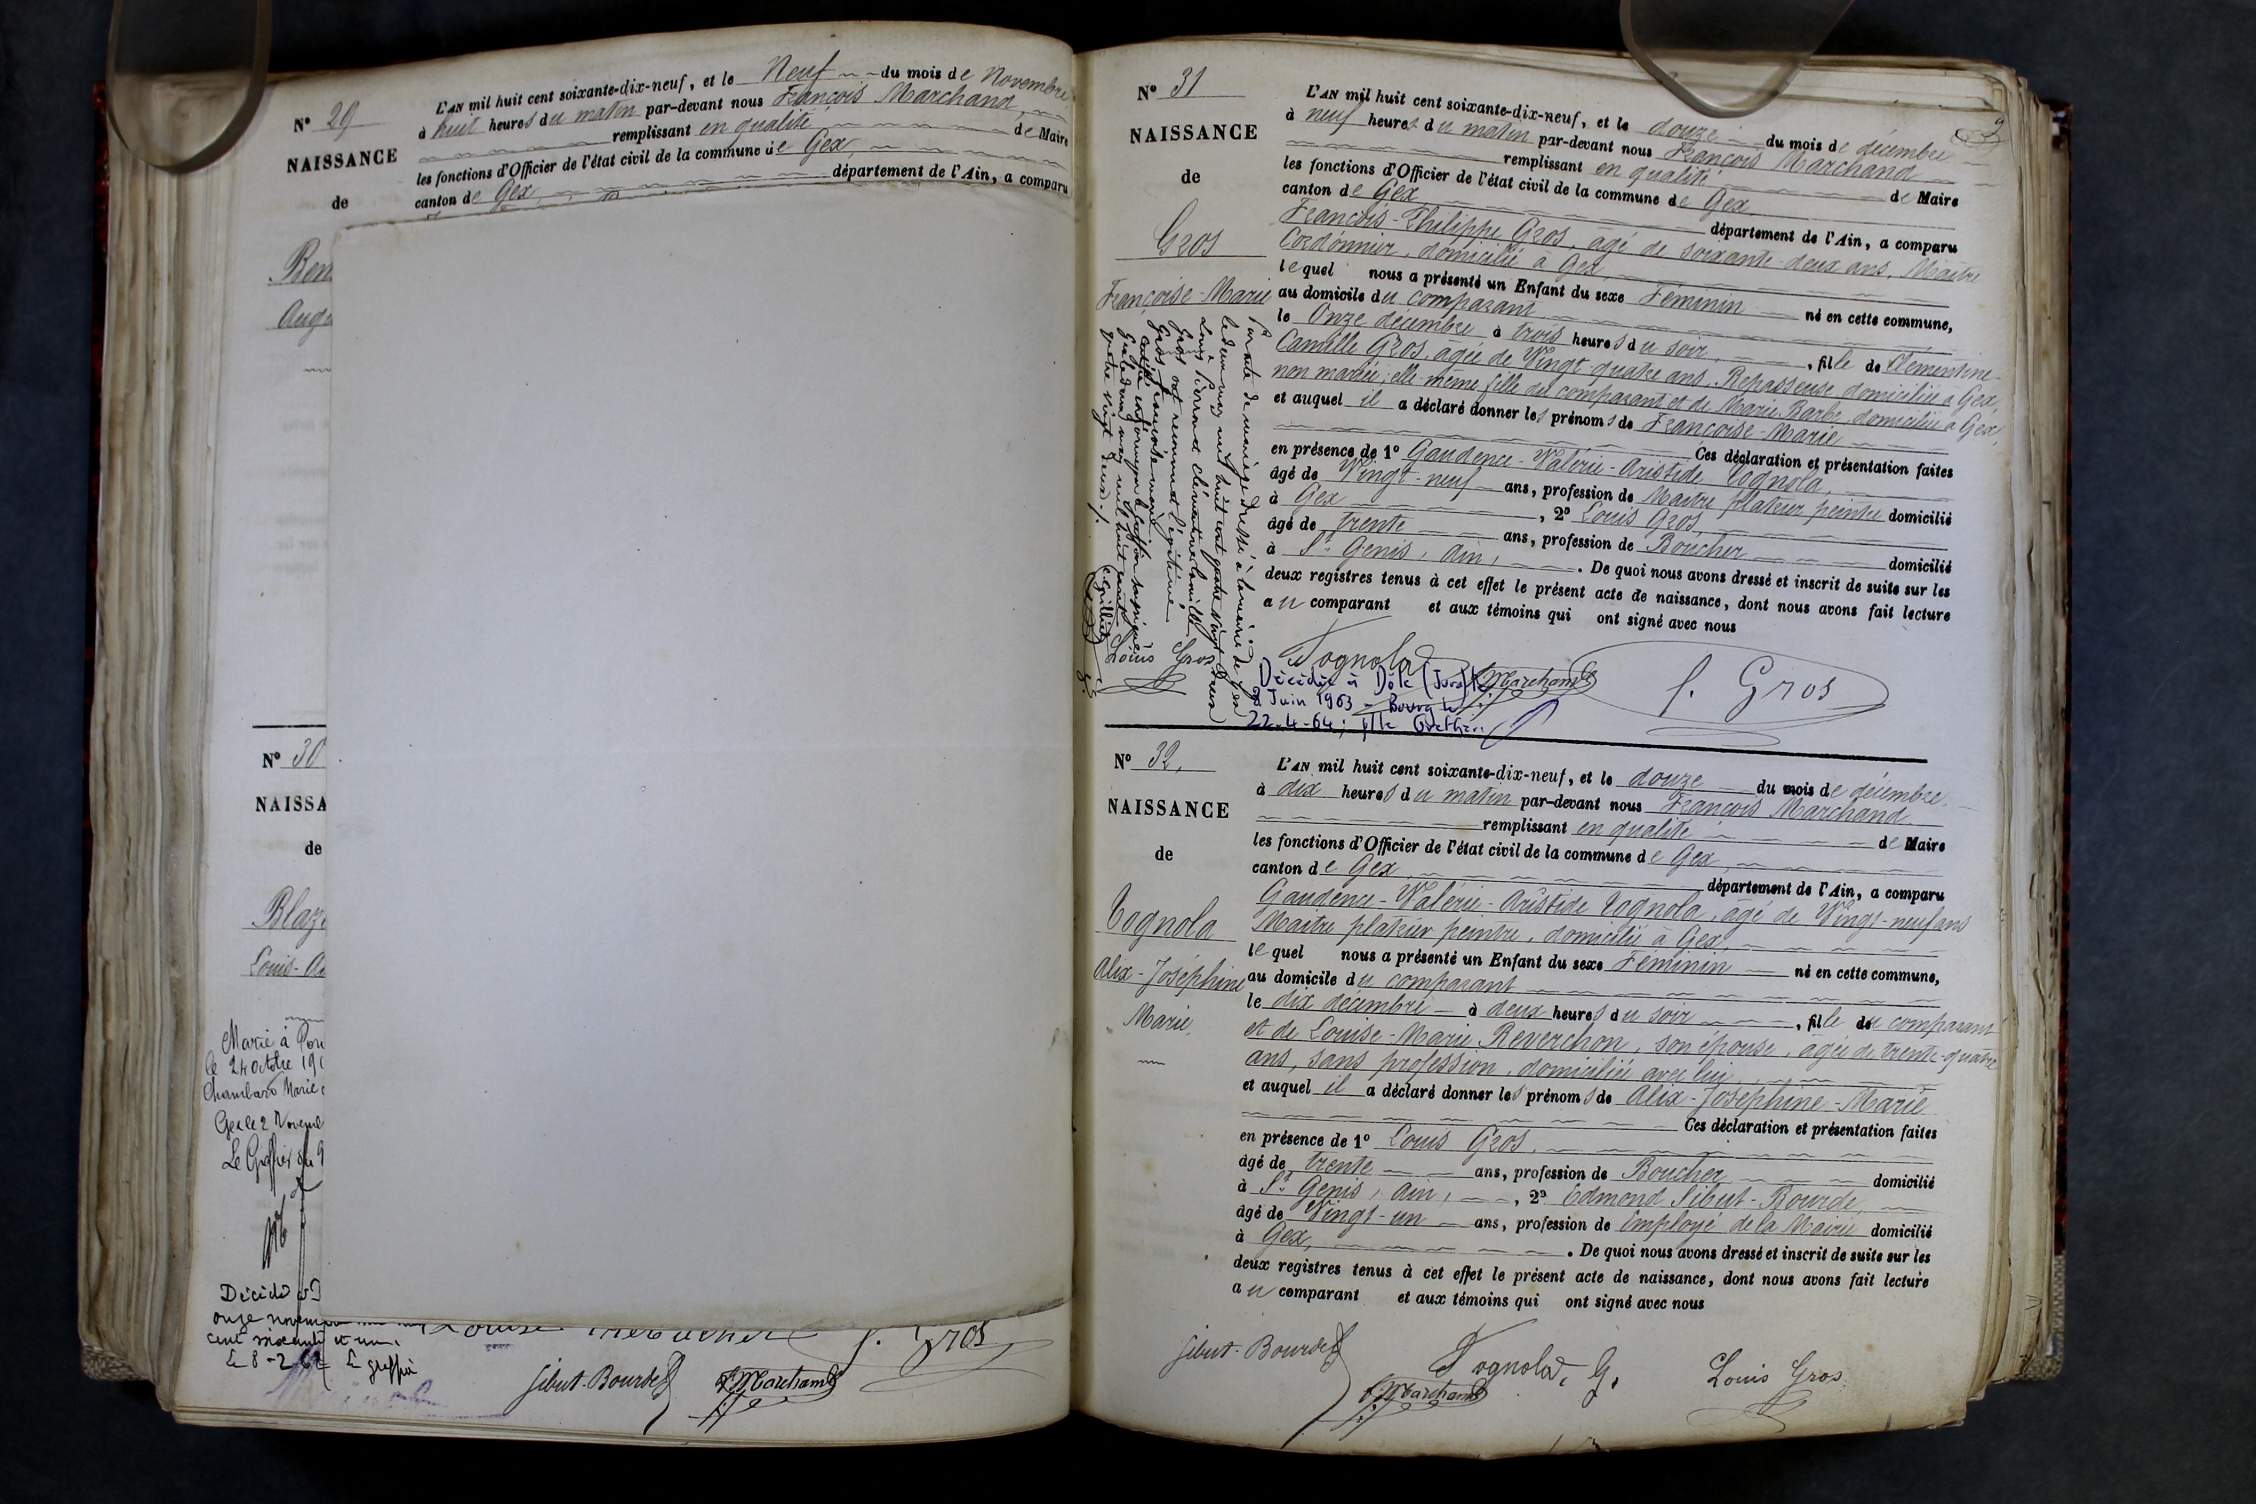 N° 29
NAISSANCE
de
L'AN mil huit cent soixante-dix-neuf, et le Neuf du mois de Novembre
à huit heures du matin par-devant nous François Marchand
remplissant en qualité de Maire
les fonctions d'Officier de l'état civil de la commune de Gex
canton de Gex département de l'Ain, a comparu
Ren
Augu
N° 30
NAISSA
de
Blaz
Louis-
Marié à
le 24 octobre 19
Chambard Marie
Gex le 2 Novem
Le Greffier
Décédé
onze novem
cent soixante et un
Le 8-2 62 Le greffier
f. Gros
Sibut-Bourde
F. Marchand
N° 31
NAISSANCE
de
Gros
Françoise-Marie
L'AN mil huit cent soixante-dix-neuf, et le douze du mois de décembre
à neuf heures du matin par-devant nous François Marchand
remplissant en qualité de Maire
les fonctions d'Officier de l'état civil de la commune de Gex
canton de Gex département de l'Ain, a comparu
François-Philippe Gros, agé de soixante-deux ans, Maître
Cordonnier, domicilié à Gex
lequel nous a présenté un Enfant du sexe Féminin né en cette commune,
au domicile du comparant
le Onze décembre à trois heures du soir, fille de Clémentine-
Camille Gros, agée de Vingt-quatre ans, Repasseuse domiciliée à Gex,
non mariée; elle-même fille du comparant et de Marie Barbe, domiciliée à Gex,
et auquel il a déclaré donner les prénoms de Françoise-Marie
Ces déclaration et présentation faites
en présence de 1° Gaudence-Valérie-Aristide Tognola
âgé de Vingt-neuf ans, profession de Maître platrier peintre domicilié
à Gex, 2° Louis Gros
âgé de trente ans, profession de Boucher domicilié
à St Genis, Ain, . De quoi nous avons dressé et inscrit de suite sur les
deux registres tenus à cet effet le présent acte de naissance, dont nous avons fait lecture
au comparant et aux témoins qui ont signé avec nous
Par acte de mariage dressé à la mairie de Gex
le deux mars mil huit cent quatre vingt deux
Louis Pierre et Clémentine Camille
Gros ont reconnu et légitimé
Gros Françoise Marie
quatre vingt deux
Tognola
F. Marchand
f. Gros
Louis Gros
Décédée à Dôle (Jura) le
2 Juin 1963 - Bourg le
22-4-64; p/le Greffier:
N° 32,
NAISSANCE
de
Tognola
Alix-Joséphine
Marie
L'AN mil huit cent soixante-dix-neuf, et le douze du mois de décembre
à dix heures du matin par-devant nous François Marchand
remplissant en qualité de Maire
les fonctions d'Officier de l'état civil de la commune de Gex
canton de Gex département de l'Ain, a comparu
Gaudence-Valérie-Aristide Tognola, agé de Vingt-neuf ans
Maître platrier peintre, domicilié à Gex
lequel nous a présenté un Enfant du sexe Féminin né en cette commune,
au domicile du comparant
le dix décembre à deux heures du soir, fille du comparant
et de Louise-Marie Reverchon, son épouse, agée de trente-quatre
ans, sans profession, domiciliée avec lui
et auquel il a déclaré donner les prénoms de Alix-Joséphine-Marie
Ces déclaration et présentation faites
en présence de 1° Louis Gros,
âgé de trente ans, profession de Boucher domicilié
à St Genis, Ain, 2° Edmond Sibut-Bourde,
âgé de Vingt-un ans, profession de Employé de la Mairie domicilié
à Gex, . De quoi nous avons dressé et inscrit de suite sur les
deux registres tenus à cet effet le présent acte de naissance, dont nous avons fait lecture
au comparant et aux témoins qui ont signé avec nous
Sibut-Bourde
F. Marchand
Tognola, G.
Louis Gros